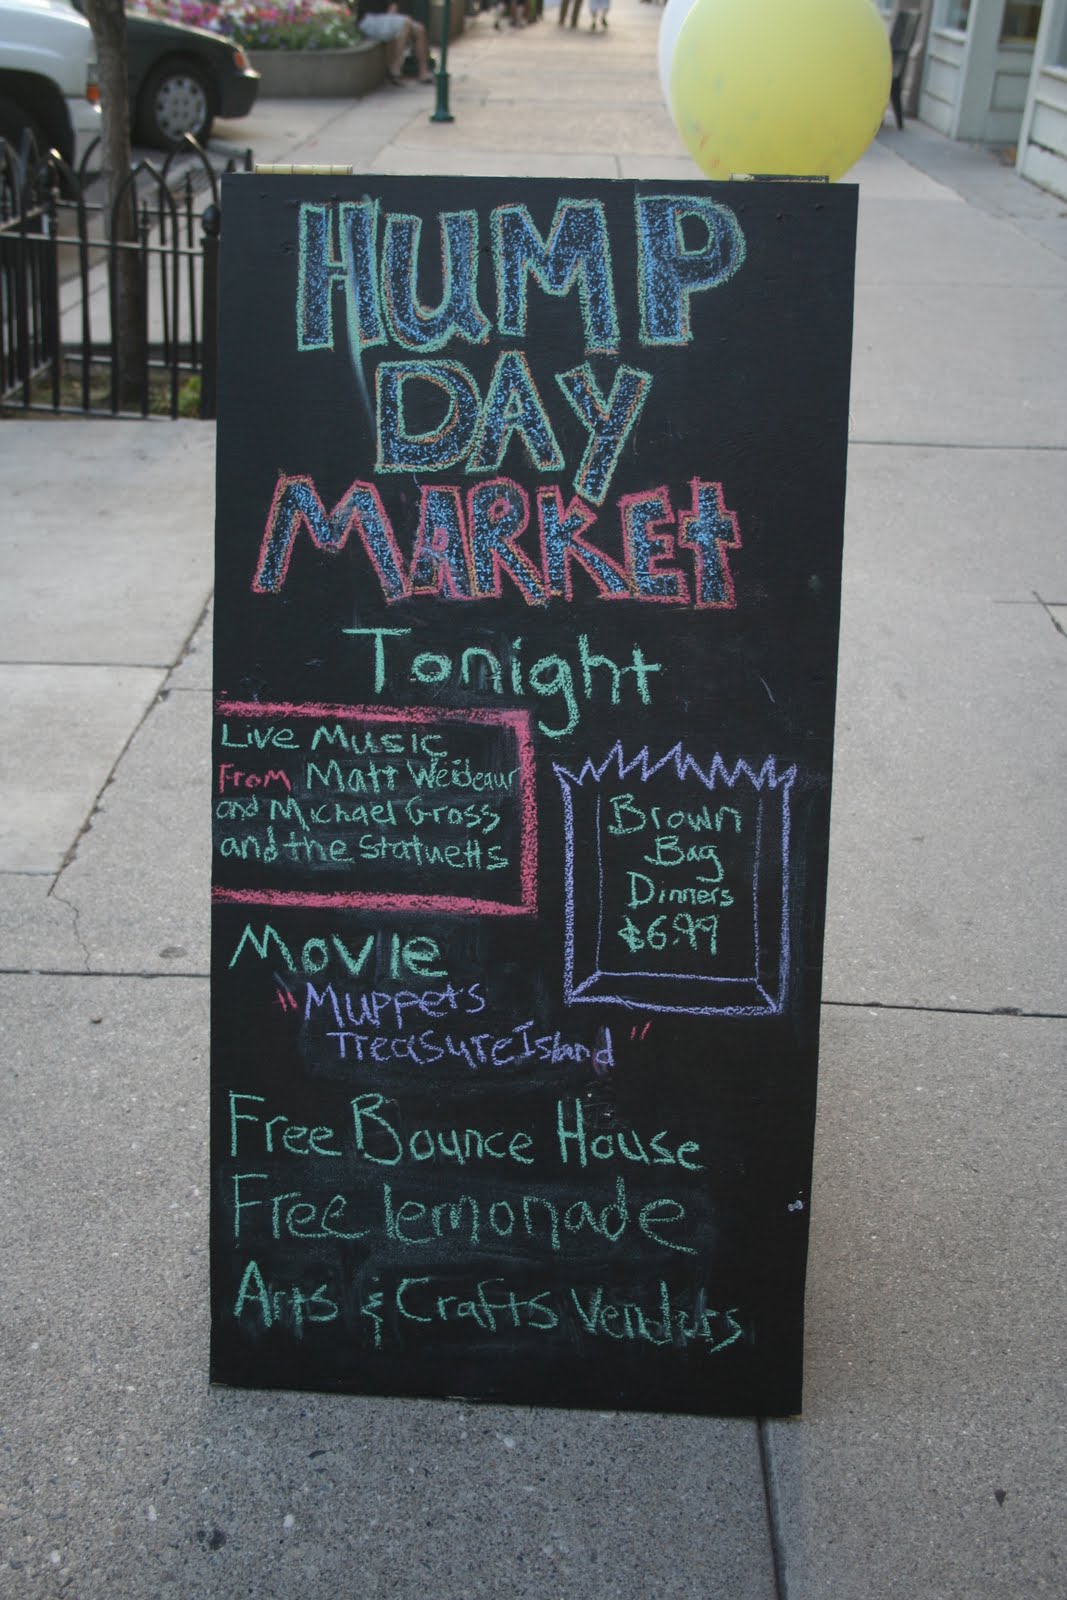 HUMP
DAY
MARKEt
Tonight
Live Music
From Matt Weideaur
and Michael Gross
and the Statuetts
Brown
Bag
Dinners
$6.99
Movie
"Muppets
Treasure Island"
Free Bounce House
Free lemonade
Arts & Crafts Vendors